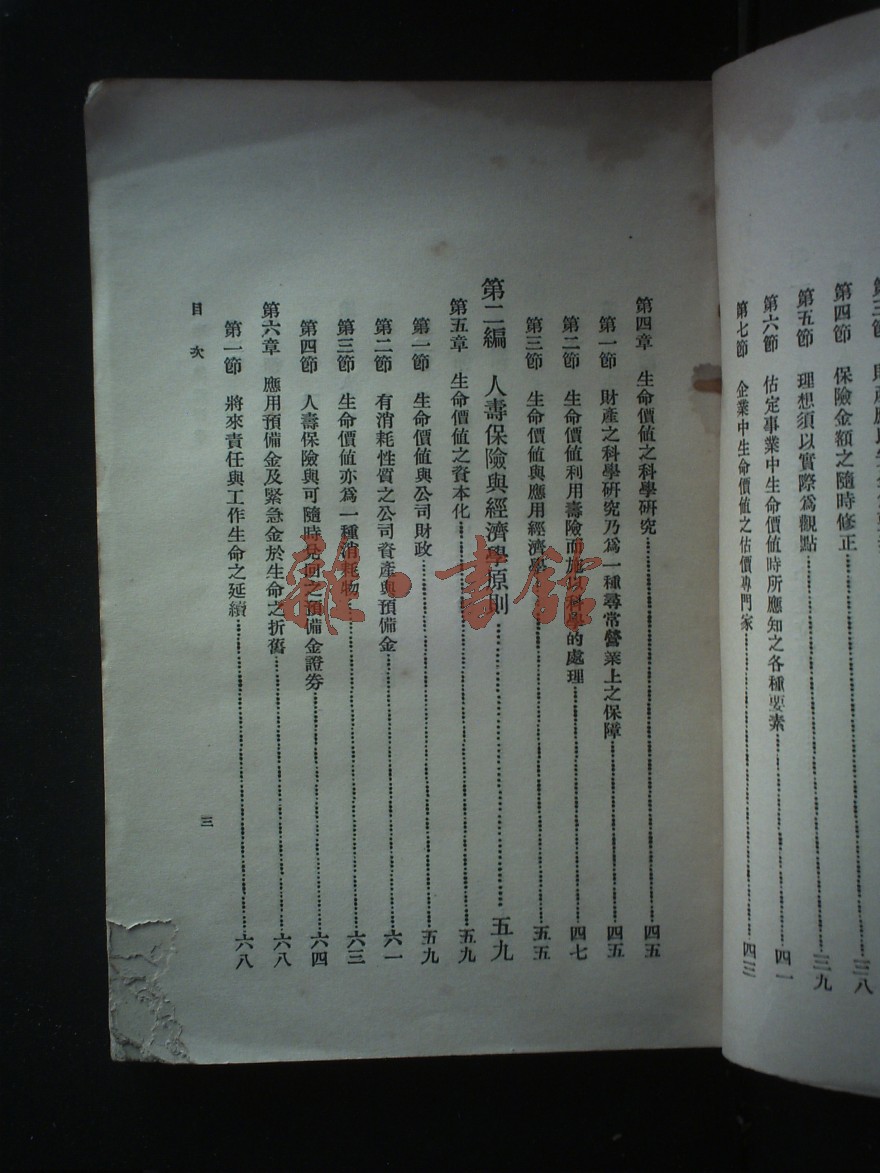 第四節　保險金額之隨時修正……三八
第五節　理想須以實際爲觀點……三九
第六節　估定事業中生命價值時所應知之各種要素……四一
第七節　企業中生命價值之估價專門家……四三
第四章　生命價值之科學研究……四五
第一節　財產之科學研究乃爲一種尋常營業上之保障……四五
第二節　生命價值利用壽險而施以科學的處理……四七
第三節　生命價值與應用經濟學……五五
第二編　人壽保險與經濟學原則……五九
第五章　生命價值之資本化……五九
第一節　生命價值與公司財政……五九
第二節　有消耗性質之公司資產與預備金……六一
第三節　生命價值亦爲一種消耗物……六三
第四節　人壽保險與可隨時兌回之預備金證券……六四
第六章　應用預備金及緊急金於生命之折舊……六八
第一節　將來責任與工作生命之延續……六八
目次
三
雜·書館